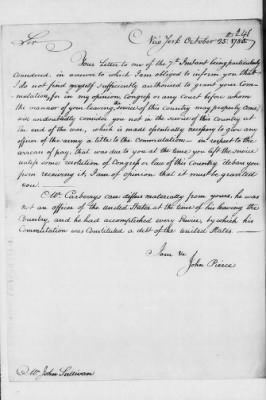 Sir
New York October 25. 1785.
Your Letter to me of the 7th. Instant being particularly
considered, in answer to which I am obliged to inform you that
I do not find myself sufficiently authorized to grant your Com-
mutation, for in my opinion Congress or any Court before whom
the manner of your leaving the service of this Country may properly come
will undoubtedly consider you not in the service of this Country at
the end of the war, which is made essentially necessary to give any
officer of the army a title to the commutation — in respect to the
arrears of pay, that was due to you at the time you left the service
unless some resolution of Congress or law of this Country debars you
from receiving it, I am of opinion that it must be granted
you.
Mr. Carberrys case differs materially from yours: he was
not an officer of the United States at the time of his leaving the
Country, and he had accomplished every service, by which his
Commutation was constituted a debt of the United States —
I am &c
John Pierce
Mr. John Sullivan